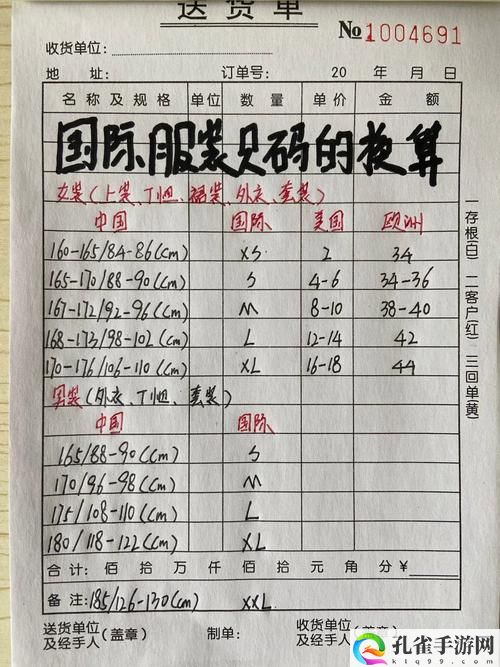 送货单
No 1004691
收货单位:
地 址: 订单号: 20 年 月 日
名称及规格 单位 数量 单价 金额
国际服装尺码的换算
女装(上装、T恤、裙装、外衣、套装)
中国 国际 美国 欧洲
160-165/84-86(cm) XS 2 34
165-170/88-90(cm) S 4-6 34-36
167-172/92-96(cm) M 8-10 38-40
168-173/98-102(cm) L 12-14 42
170-176/106-110(cm) XL 16-18 44
男装(外衣、T恤、套装)
中国 国际
165/88-90(cm) S
170/96-98(cm) M
175/108-110(cm) L
180/118-122(cm) XL
合计: 佰 拾 万 仟 佰 拾 元 角 分 ¥
备注: 185/126-130(cm) XXL
送货单位及经手人(盖章) 制单: 收货单位及经手人(盖章)
一存根(白) 二客户(红) 三回单(黄)
孔雀手游网
ktq99.com